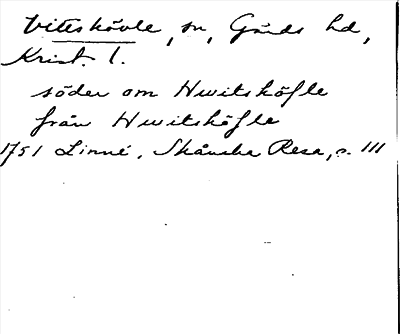 Vittskövle, sn, Gärds hd,
Krist. l.
söder om Hwitsköfle
från Hwitsköfle
1751 Linné, Skånska Resa, s. 111